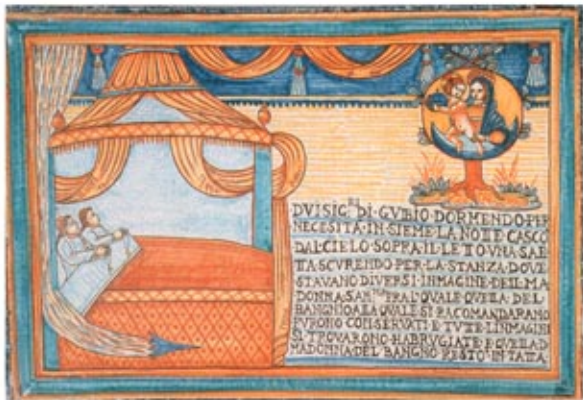 DVI SIG^RI DI GVBIO DORMENDO PER
NECESITA IN SIEME LA NOTTE CASCO
DAL CIELO SOPRA IL LETTO VNA SAE
TTA SCVRENDO PER LA STANZA DOVE
STAVANO DIVERSI INMAGINE DEIL MA
DONNA FRA L QVALE QVELLA DEL
BANGNIO A LA QVALE SI RACOMANDARANO
FVRONO CONSERVATI E TVTE L INMAGINI
SI TROVARONO HABRVGIATE E QVELLA D
MADONNA DEL BANGNO RESTO INTATTA